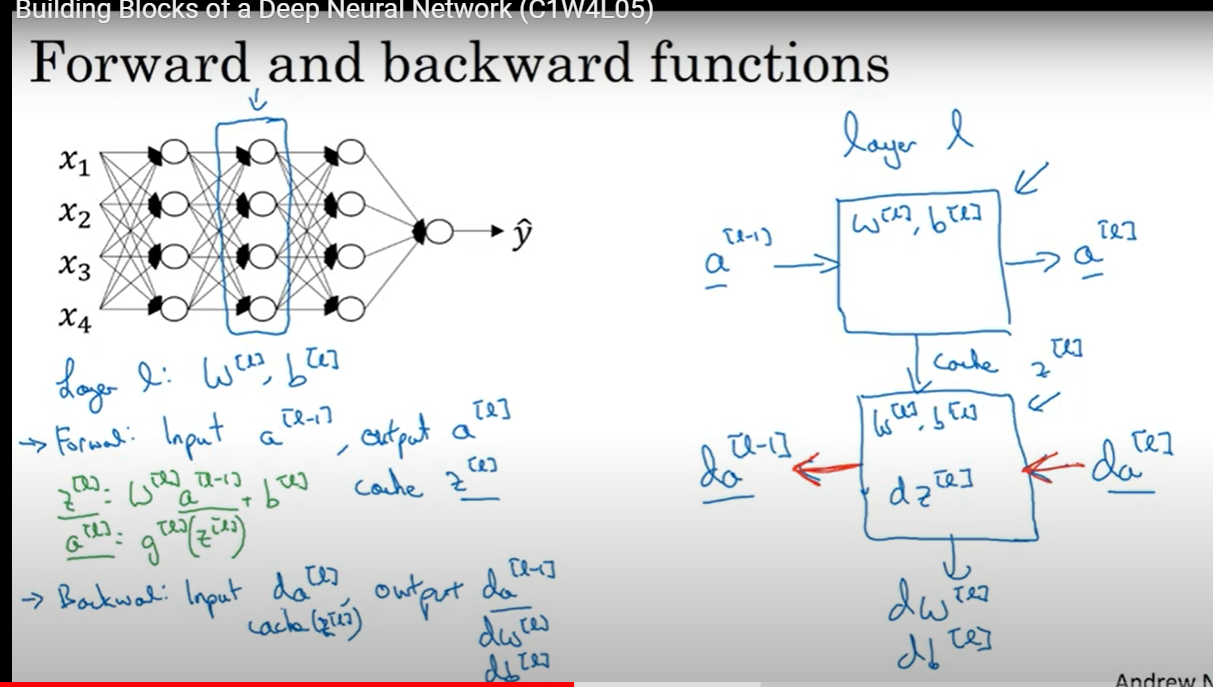 Building Blocks of a Deep Neural Network (C1W4L05)
Forward and backward functions
x₁
x₂
x₃
x₄
ŷ
Layer l: W^[l], b^[l]
→ Forward: Input a^[l-1], output a^[l]
cache z^[l]
z^[l] = W^[l] a^[l-1] + b^[l]
a^[l] = g^[l](z^[l])
→ Backward: Input da^[l], output da^[l-1]
cache (z^[l])
dW^[l]
db^[l]
layer l
W^[l], b^[l]
a^[l-1]
a^[l]
cache z^[l]
W^[l], b^[l]
da^[l-1]
dz^[l]
da^[l]
dW^[l]
db^[l]
Andrew N